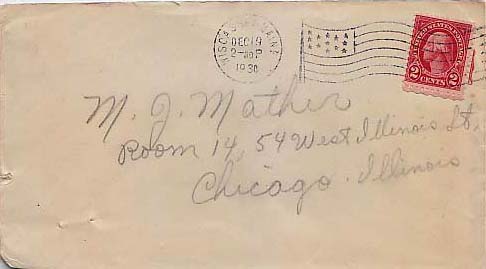 WISCASSET, MAINE
DEC 19
2-30 P
1930
UNITED STATES POSTAGE
2 CENTS 2
M. J. Mather
Room 14, 54 West Illinois St,
Chicago, Illinois